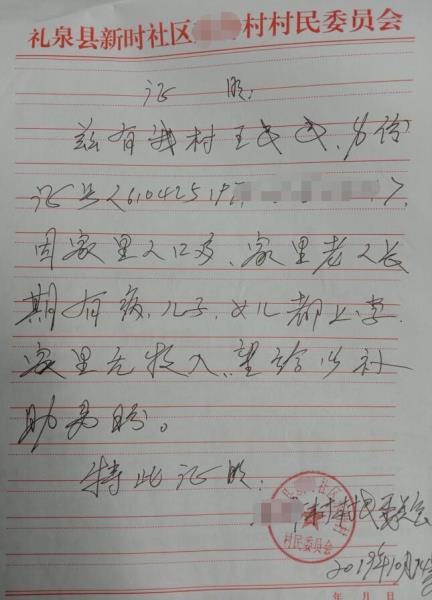 礼泉县新时社区 村村民委员会
证 明:
兹有我村王 身份
证号(610425197 ),
因家里人口多、家里老人长
期有病,儿子、女儿都上学.
家里无收入,望给以补
助为盼。
特此证明:
村村民委员会
村民委员会
2019年10月
年 月 日